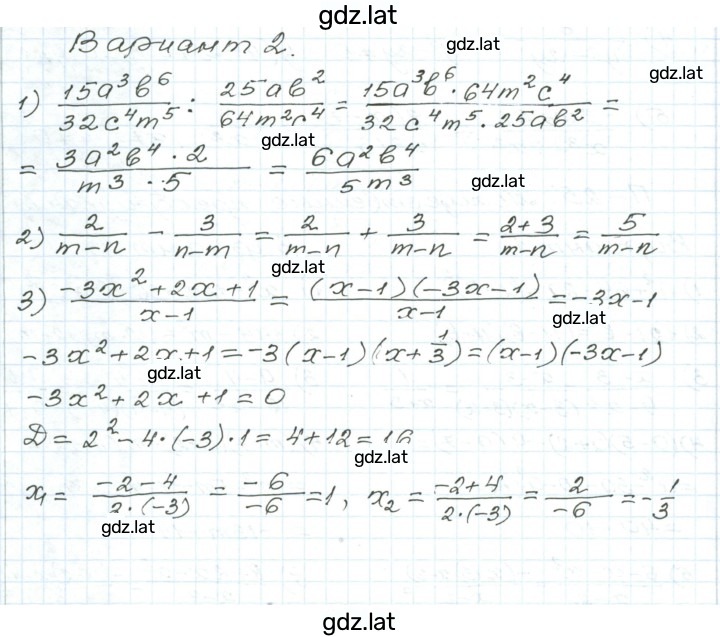 gdz.lat
Вариант 2.
gdz.lat
gdz.lat
1) 15a³b⁶/32c⁴m⁵ : 25ab²/64m²c⁴ = 15a³b⁶ · 64m²c⁴/32c⁴m⁵ · 25ab² =
gdz.lat
= 3a²b⁴ · 2/m³ · 5 = 6a²b⁴/5m³
gdz.lat
2) 2/m-n - 3/n-m = 2/m-n + 3/m-n = 2+3/m-n = 5/m-n
gdz.lat
3) -3x²+2x+1/x-1 = (x-1)(-3x-1)/x-1 = -3x-1
gdz.lat
-3x²+2x+1 = -3(x-1)(x+1/3) = (x-1)(-3x-1)
gdz.lat
-3x²+2x+1=0
D = 2²-4·(-3)·1 = 4+12 = 16
gdz.lat
x₁ = -2-4/2·(-3) = -6/-6 = 1, x₂ = -2+4/2·(-3) = 2/-6 = -1/3
gdz.lat
gdz.lat